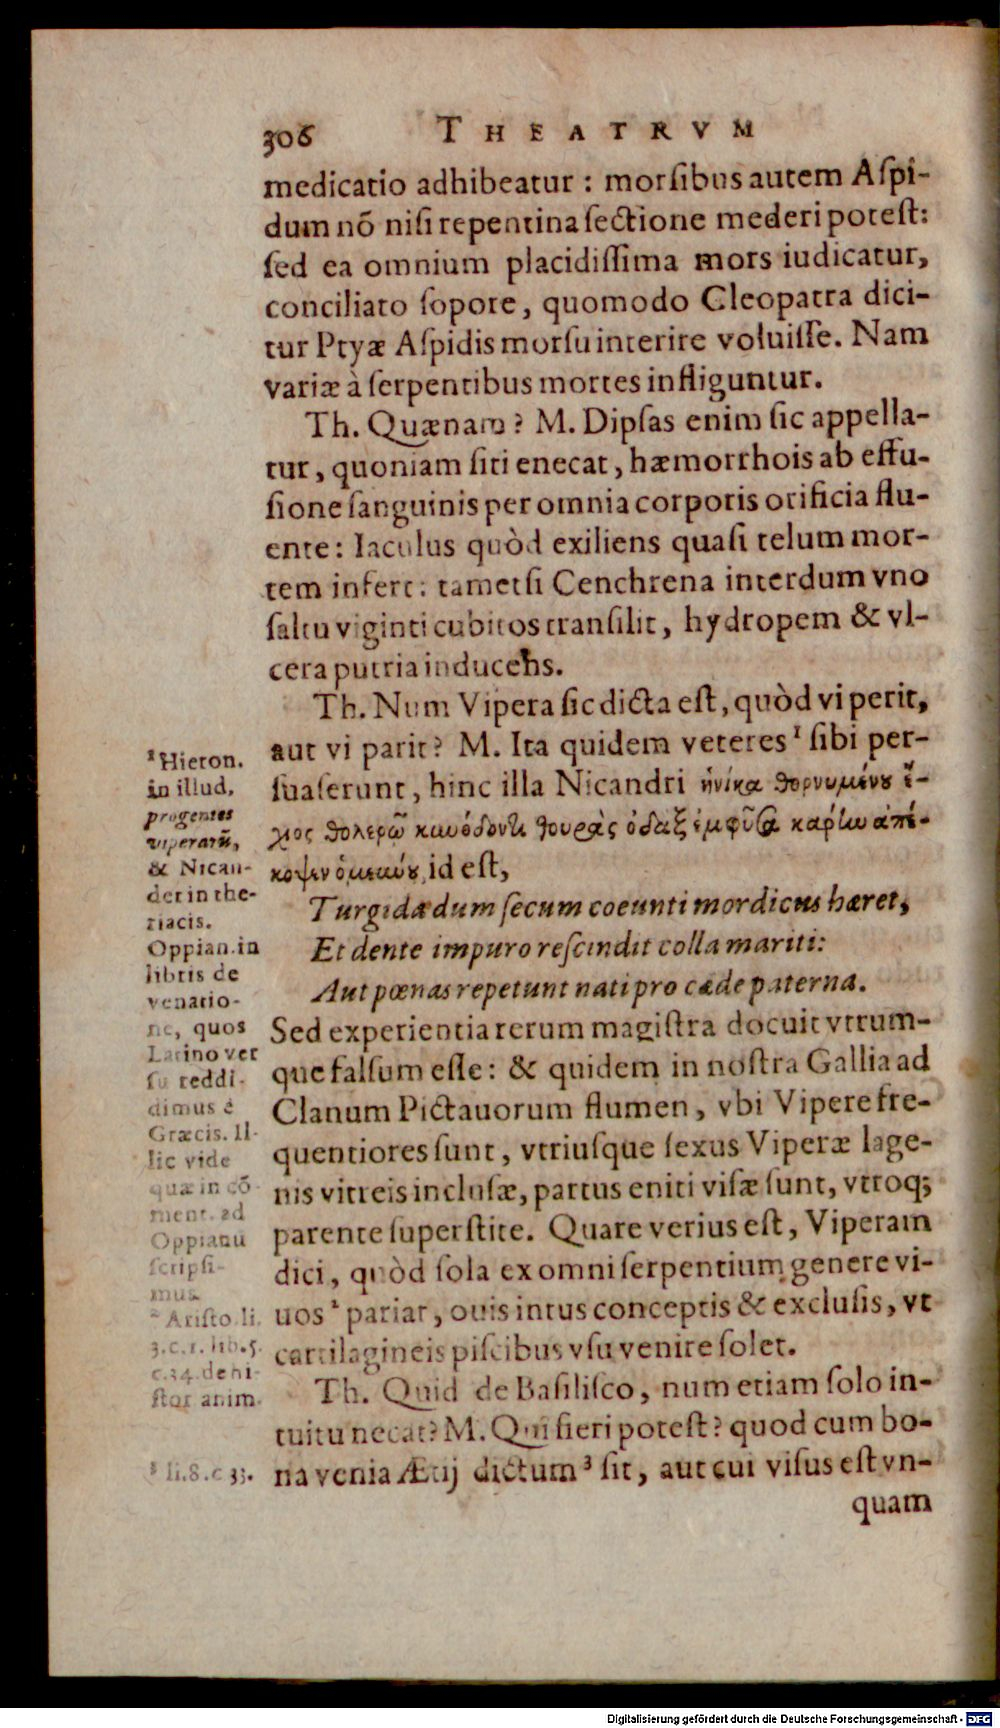 306 THEATRVM
medicatio adhibeatur : morſibus autem Aſpi-
dum nõ niſi repentina ſectione mederi poteſt:
ſed ea omnium placidiſſima mors iudicatur,
conciliato ſopore, quomodo Cleopatra dici-
tur Ptyæ Aſpidis morſu interire voluiſſe. Nam
variæ à ſerpentibus mortes infliguntur.
Th. Quænam? M. Dipſas enim ſic appella-
tur, quoniam ſiti enecat, hæmorrhois ab effu-
ſione ſanguinis per omnia corporis orificia flu-
ente: Iaculus quòd exiliens quaſi telum mor-
tem infert: tametſi Cenchrena interdum vno
ſaltu viginti cubitos tranſilit, hydropem & vl-
cera putria inducens.
Th. Num Vipera ſic dicta eſt, quòd vi perit,
aut vi parit? M. Ita quidem veteres¹ ſibi per-
ſuaſerunt, hinc illa Nicandri ἡνίκα θορνυμένου ἔ-
χιος θολερῷ κυνόδοντι θουρὰς ὀδὰξ ἐμφῦσα κάρην ἀπέ-
κοψεν ὁμεύνου, id eſt,
Turgida dum ſecum coeunti mordicus hæret,
Et dente impuro reſcindit colla mariti:
Aut pœnas repetunt nati pro cæde paterna.
Sed experientia rerum magiſtra docuit vtrum-
que falſum eſſe: & quidem in noſtra Gallia ad
Clanum Pictauorum flumen, vbi Vipere fre-
quentiores ſunt, vtriuſque ſexus Viperæ lage-
nis vitreis incluſæ, partus eniti viſæ ſunt, vtroq;
parente ſuperſtite. Quare verius eſt, Viperam
dici, quòd ſola ex omni ſerpentium genere vi-
uos² pariat, ouis intus conceptis & excluſis, vt
cartilagineis piſcibus vſu venire ſolet.
Th. Quid de Baſiliſco, num etiam ſolo in-
tuitu necat? M. Qui fieri poteſt? quod cum bo-
na venia Ætij dictum³ ſit, aut cui viſus eſt vn-
quam
¹ Hieron.
in illud,
progenies
viperarũ,
& Nican-
der in the-
riacis.
Oppian. in
libris de
venatio-
ne, quos
Latino ver
ſu reddi-
dimus è
Græcis. Il-
lic vide
quæ in cõ
ment. ad
Oppianu
ſcripſi-
mus.
² Ariſto. li.
3. c. 1. lib. 5.
c. 34. de hi-
ſtor anim.
³ li. 8. c 33.
Digitalisierung gefördert durch die Deutsche Forschungsgemeinschaft - DFG